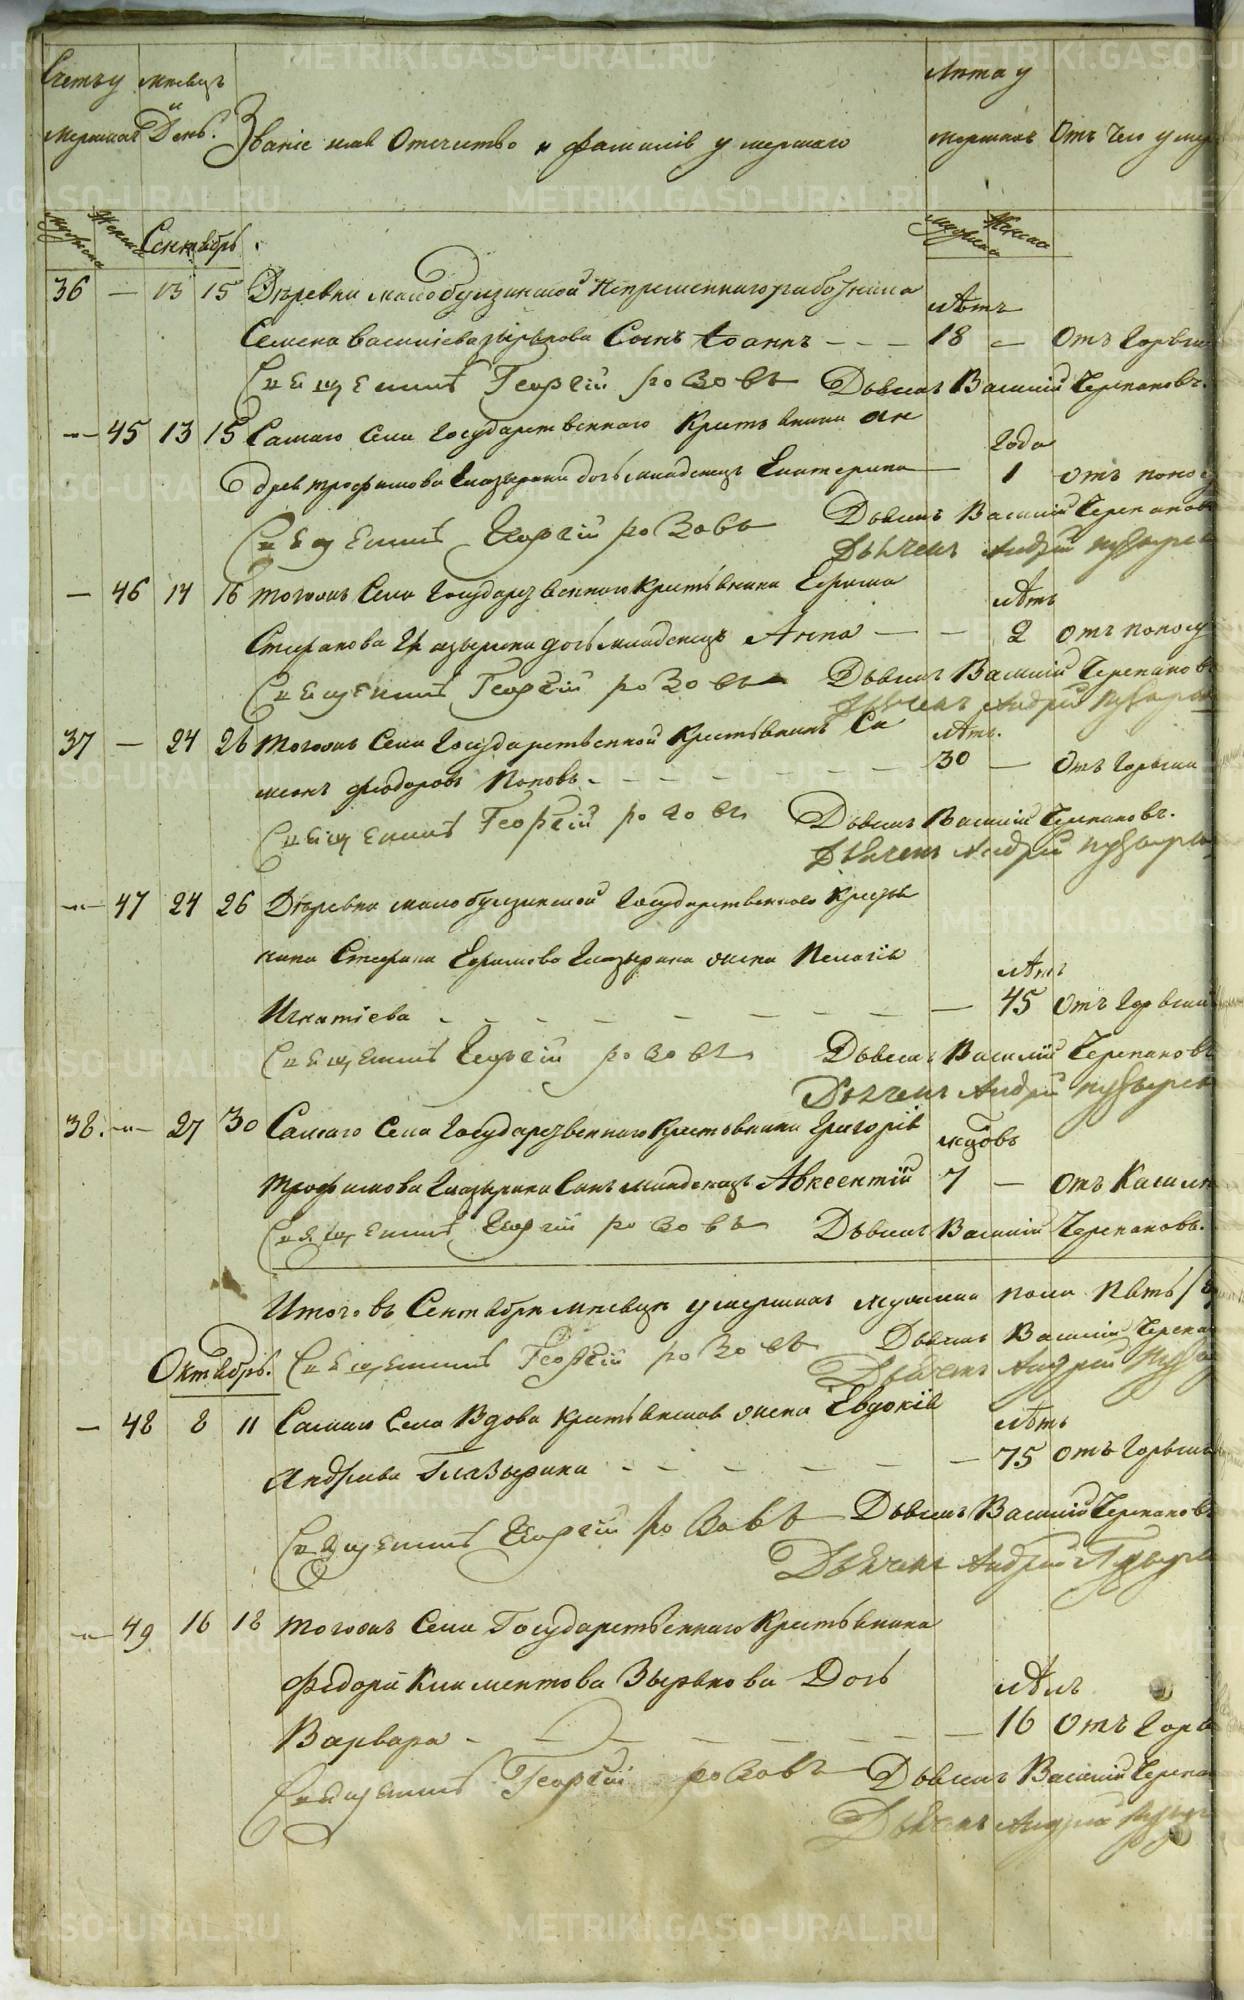 Счетъ у Месяцъ Лѣта у
мершихъ и День. Званіе имя Отечество и фамилія умершаго мершихъ Отъ чего умер
мужска женска Сентябрь. мужска женска
36 — 13 15 Деревни малобулзинской Непременнаго работника Лѣтъ
Семена Василіева Зырянова Сынъ Іоаннъ — — — 18 — Отъ Горяч
Священникъ Георгій розовъ Дьячекъ Василій Черепановъ.
— 45 13 15 Самаго Села Государственнаго Крестьянина Ан Года
дрея трофимова Глазырина дочь младенецъ Екатерина — 1 отъ понос
Священникъ Георгій розовъ Дьячекъ Василій Черепановъ
Дьячекъ Андрей пузырев
— 46 14 16 тогожъ Села Государственнаго Крестьянина Ефима Лѣтъ
Стефанова Глазырина дочь младенецъ Анна — — 2 отъ поносу
Священникъ Георгій розовъ Дьячекъ Василій Черепановъ
Дьячекъ Андрей пузырев
37 — 24 26 тогожъ Села Государственной Крестьянинъ Си Лѣтъ.
меонъ феодоровъ Поповъ — — — 30 — Отъ Горячк
Священникъ Георгій розовъ Дьячекъ Василій Черепановъ.
Дьячекъ Андрей пузырев
— 47 24 26 Деревни малобулзинской Государственнаго Крестья
нина Стефана Ефимова Глазырина жена Пелагія Лѣтъ
Игнатіева — — — 45 Отъ Горячк
Священникъ Георгій розовъ Дьячекъ Василій Черепановъ
Дьячекъ Андрей пузырев
38. — 27 30 Самаго Села Государственнаго Крестьянина Григорія мцовъ
трофимова Глазырина Сынъ младенецъ Авксентій 7 — Отъ Кашля
Священникъ Георгій розовъ Дьячекъ Василій Черепановъ.
Итого въ Сентябре месяце умершихъ мужска пола Пять
Священникъ Георгій розовъ Дьячекъ Василій Черепа
Октябрь. Дьячекъ Андрей Пузы
— 48 8 11 Самаго Села Вдова Крестьянская жена Евдокія Лѣтъ
Андреева Глазырина — — — 75 Отъ Горячк
Священникъ Георгій розовъ Дьячекъ Василій Черепановъ
Дьячекъ Андрей Пузыре
— 49 16 18 тогожъ Села Государственнаго Крестьянина
федора Климентова Зырянова Дочь Лѣтъ
Варвара — — — 16 Отъ Горя
Священникъ Георгій розовъ Дьячекъ Василій Черепа
Дьячекъ Андрей пузыр